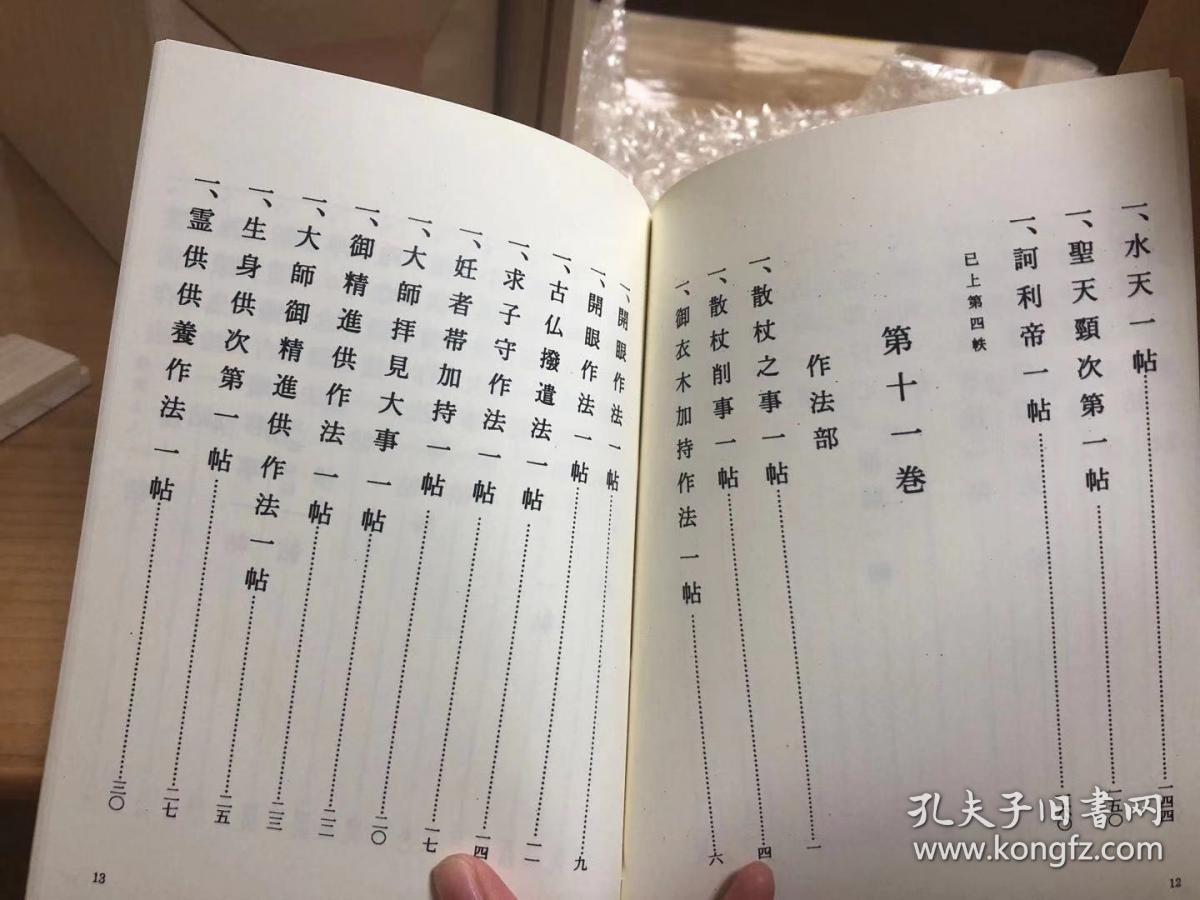 一、水天一帖……一四四
一、聖天頸次第一帖……一五〇
一、訶利帝一帖……
已上第四帙
第十一巻
作法部
一、散杖之事一帖……一
一、散杖削事一帖……四
一、御衣木加持作法一帖……六
12
一、開眼作法一帖……九
一、開眼作法一帖……一一
一、古仏撥遣法一帖……一四
一、求子守作法一帖……一七
一、妊者帯加持一帖……二〇
一、大師拝見大事一帖……二二
一、御精進供作法一帖……二三
一、大師御精進供作法一帖……二五
一、生身供次第一帖……二七
一、霊供供養作法一帖……三〇
13
孔夫子旧書网
www.kongfz.com